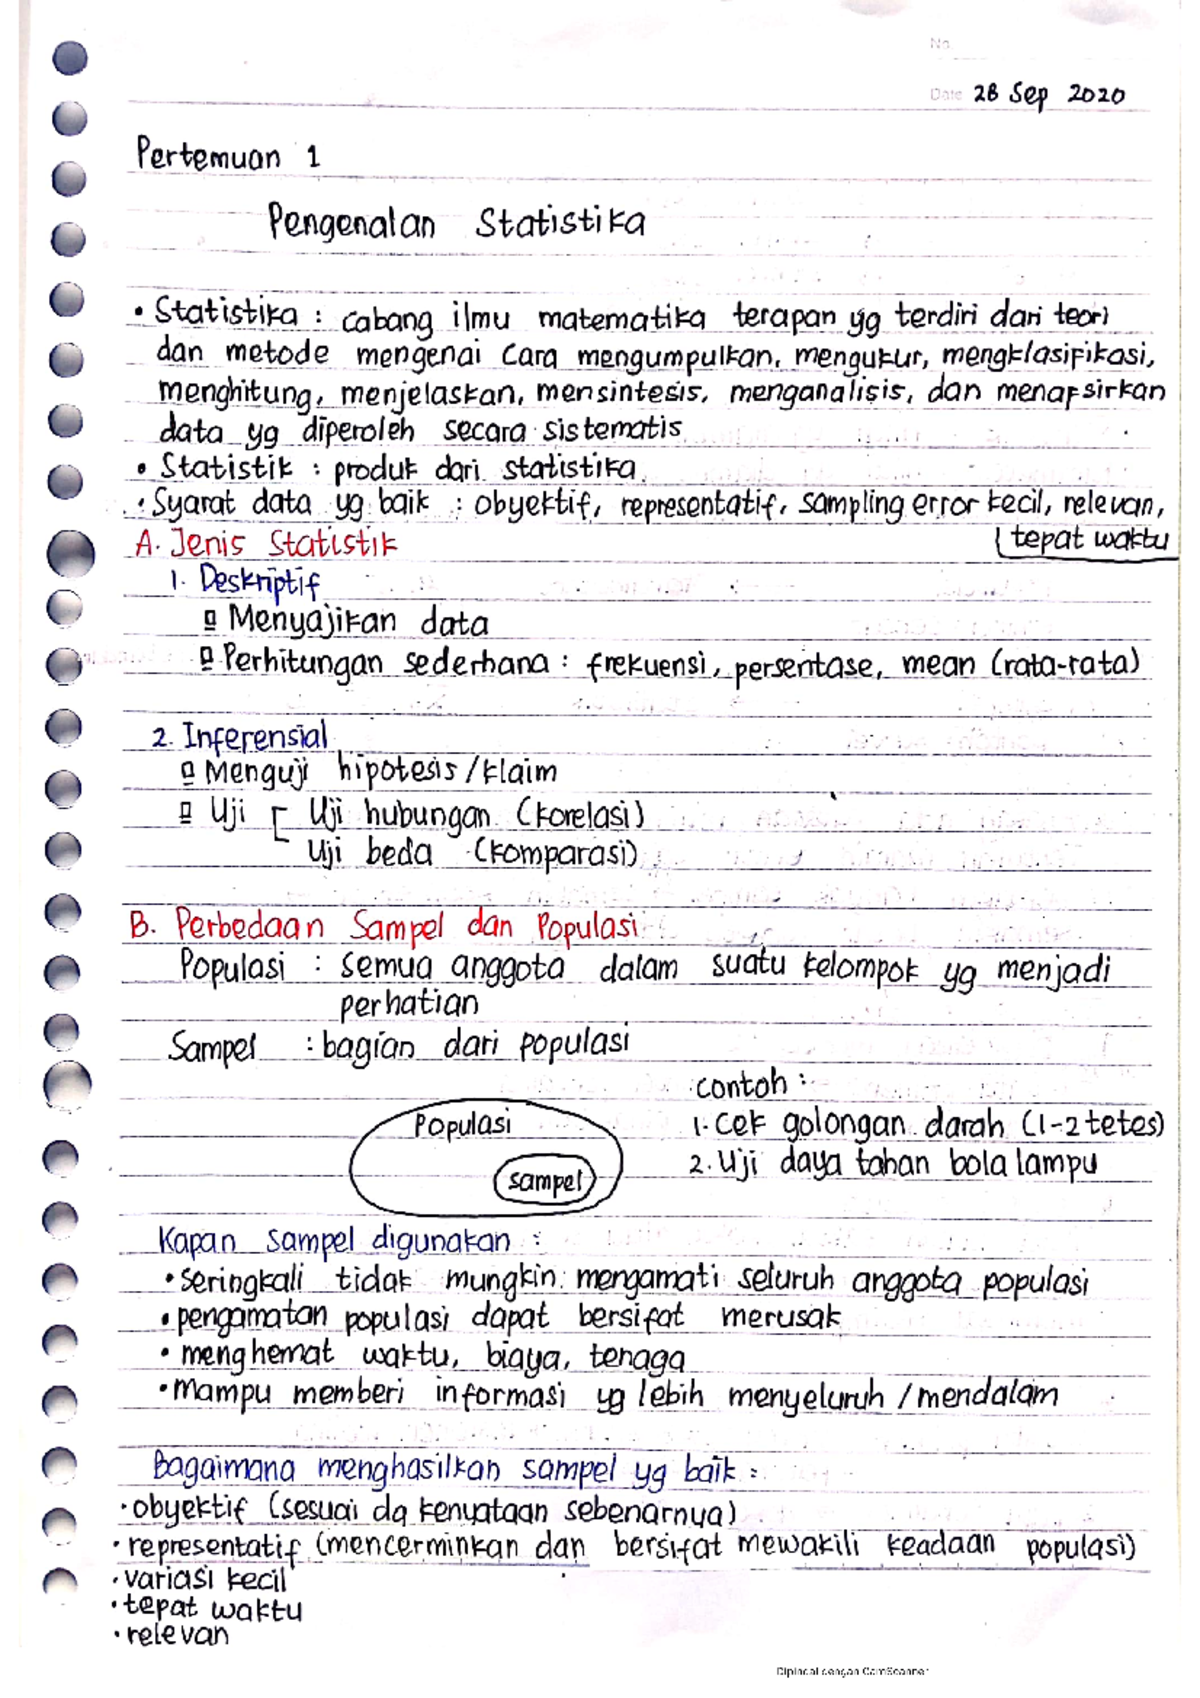 No.
Date 28 Sep 2020
Pertemuan 1
Pengenalan Statistika
• Statistika : cabang ilmu matematika terapan yg terdiri dari teori
dan metode mengenai cara mengumpulkan, mengukur, mengklasifikasi,
menghitung, menjelaskan, mensintesis, menganalisis, dan menafsirkan
data yg diperoleh secara sistematis
• Statistik : produk dari statistika
• Syarat data yg baik : obyektif, representatif, sampling error kecil, relevan,
tepat waktu
A. Jenis Statistik
1. Deskriptif
Menyajikan data
Perhitungan sederhana : frekuensi, persentase, mean (rata-rata)
2. Inferensial
Menguji hipotesis/klaim
Uji Uji hubungan (korelasi)
Uji beda (komparasi)
B. Perbedaan Sampel dan Populasi
Populasi : semua anggota dalam suatu kelompok yg menjadi
perhatian
Sampel : bagian dari populasi
Populasi
sampel
contoh :
1. Cek golongan darah (1-2 tetes)
2. Uji daya tahan bola lampu
Kapan sampel digunakan :
• seringkali tidak mungkin mengamati seluruh anggota populasi
• pengamatan populasi dapat bersifat merusak
• menghemat waktu, biaya, tenaga
• Mampu memberi informasi yg lebih menyeluruh / mendalam
Bagaimana menghasilkan sampel yg baik :
• obyektif (sesuai dg kenyataan sebenarnya)
• representatif (mencerminkan dan bersifat mewakili keadaan populasi)
• variasi kecil
• tepat waktu
• relevan
Dipindai dengan CamScanner